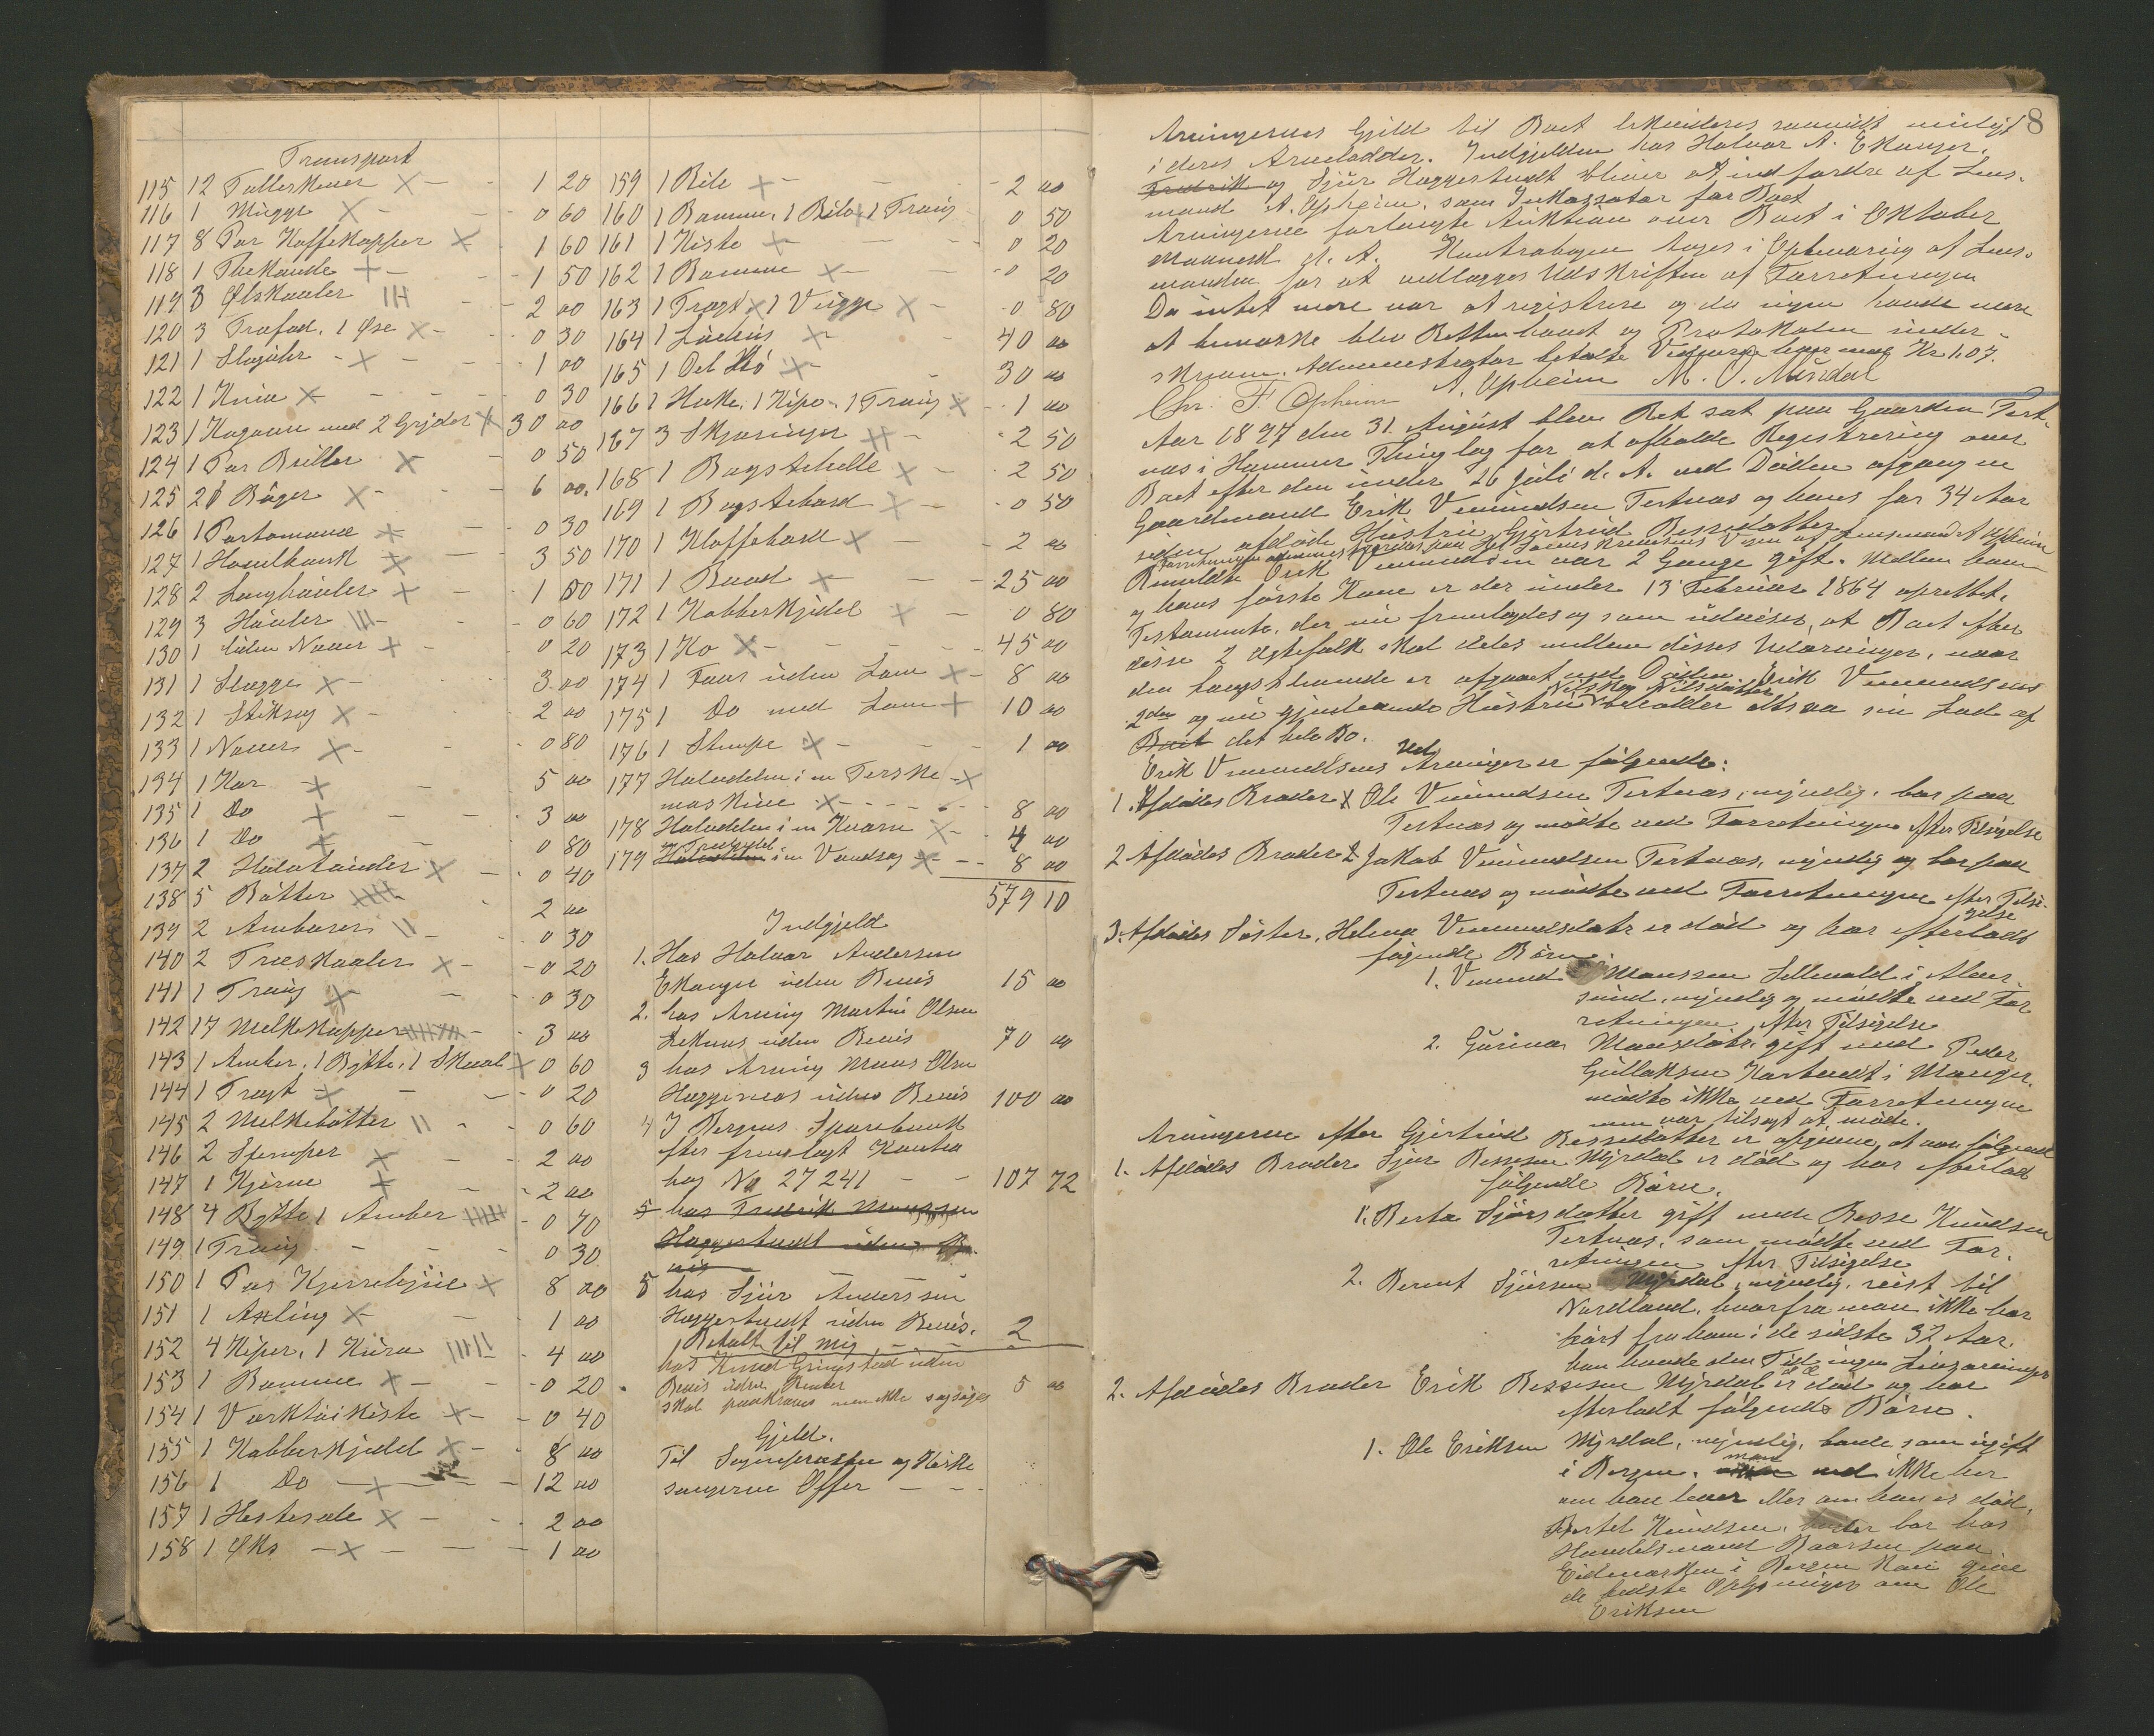 Transport
115 12 Tallerkener 1 20
116 1 Mugge 0 60
117 8 Par Kaffekopper 1 60
118 1 Thekande 1 50
119 3 Ølskaaler 2 00
120 3 Trefad, 1 Øse 0 30
121 1 Slaguhr 1 00
122 1 Kniv 0 30
123 1 Kogeovn med 2 Gryder 30 00
124 1 Par Briller 0 50
125 21 Bøger 6 00
126 1 Portomone 0 30
127 1 Høvelbænk 3 50
128 2 Langhøvler 1 00
129 3 Høvler 0 60
130 1 liden Naver 0 20
131 1 Slegge 3 00
132 1 Stiksag 2 00
133 1 Naver 0 80
134 1 Kar 5 00
135 1 Do 3 00
136 1 Do 0 80
137 2 Halvtønder 0 40
138 5 Bøtter 2 00
139 2 Ambarer 0 30
140 2 Træskaaler 0 20
141 1 Traug 0 30
142 17 Melkekopper 3 00
143 1 Ambar, 1 Bøtte, 1 Skaal 0 60
144 1 Tragt 0 20
145 2 Melkebøtter 0 60
146 2 Stamper 2 00
147 1 Kjerne 2 00
148 4 Bøtte 1 Ambar 0 70
149 1 Traug 0 30
150 1 Par Kjerrehjul 8 00
151 1 Axling 1 00
152 4 Kiper, 1 Kurv 4 00
153 1 Bomme 0 20
154 1 Værktøikiste 0 40
155 1 Kobberkjedel 8 00
156 1 Do 12 00
157 1 Hestesele 2 00
158 1 Øks 1 00
159 1 Bile 2 00
160 1 Bomme, 1 Bile, 1 Traug 0 50
161 1 Kiste 0 20
162 1 Bomme 0 20
163 1 Tragt 1 Vugge 0 80
164 1 Løehus 40 00
165 1 Del Hø 30 00
166 1 Hakke, 1 Kipe, 1 Traug 1 00
167 3 Skjæringer 2 50
168 1 Bagstehelle 2 50
169 1 Bagstebord 0 50
170 1 Klaffebord 2 00
171 1 Baad 25 00
172 1 Kobberkjedel 0 80
173 1 Ko 45 00
174 1 Faar uden Lam 8 00
175 1 Do med Lam 10 00
176 1 Stampe 1 00
177 Halvdelen i en Terske
maskine 8 00
178 Halvdelen i en Kværn 4 00
179 Halvdelen i en Vandsag 8 00
579 10
Indgjeld
1. Hos Halvor Andersen
Ekanger uden Bevis 15 00
2. hos Arving Martin Olsen
uden Bevis 70 00
3 hos Arving Mons Olsen
uden Bevis 100 00
4 I Bergens Sparebank
efter fremlagt Kontra
bog No 27241 107 72
5 hos Fredrik Monssen
Haggertvedt uden Be
vis
5 hos Sjur Anderssen
Haggertvedt uden Bevis. 2
Betalt til mig
hos Knud Gringstad uden
Bevis uden Renter 5 00
skal paakræves men ikke sagsøges
Gjeld.
Til Sognepræsten og Kirke
sangerne Offer
8
Arvingernes Gjeld til Boet likvideres saavidt muligt
i deres Arvelodder. Indgjelden hos Halvor A. Ekanger,
Fredrik og Sjur Haggertvedt bliver at indfordre af Lens-
mand A. Opheim, som Inkassator for Boet
Arvingerne forlangte Auktion over Boet i Oktober
Maaned d. A. Kontrabogen toges i Opbevaring af Lens-
manden for at vedlægges Udskriften af Forretningen
Da intet mere var at registrere og da ingen havde mere
at bemærke blev Retten hævet og Protokollen under-
skreven. Administrator betalte Vidnerne hver med Kr 1.07.
Chr. F. Opheim A. Opheim M. O. Mundal
Aar 1897 den 31. August blev Ret sat paa Gaarden Tert-
næs i Hammer Thinglag for at afholde Registrering over
Boet efter den under 26 Juli d. A. ved Døden afgangne
Gaardmand Erik Vemundsen Tertnæs og hans for 34 Aar
siden afdøde Hustru Gjertrud Bessesdatter
Bemeldte Erik Vemundsen var 2 Gange gift. Mellem ham
og hans første Kone er der under 13 Februar 1864 oprettet
Testamente, der nu fremlagdes og som udviser, at Boet efter
disse 2 Ægtefolk skal deles mellem disses Udarvinger, naar
den længstlevende er afgaaet ved Døden. Erik Vemundsens
2den og nu gjenlevende Hustru Nilsdatter beholder altsaa sin Lod af
Boet det hele Bo.
Erik Vemundsens Arvinger er følgende:
1. Afdødes Broder Ole Vemundsen Tertnæs, myndig, bor paa
Tertnæs og mødte ved Forretningen efter Tilsigelse
2 Afdødes Broder Jakob Vemundsen Tertnæs, myndig og bor paa
Tertnæs og mødte ved Forretningen efter Tilsi-
gelse
3. Afdødes Søster, Helena Vemundsdatr er død og har efterladt
følgende Børn:
1. Vemund Monssen i Ale
sund, myndig og mødte ved For
retningen efter Tilsigelse
2. Gurina Monsdatr. gift med Peder
Gullaksen i Manger.
mødte ikke ved Forretningen
men var tilsagt at møde.
Arvingerne efter Gjertrud Bessesdatter er opgivne at være følgende
1. Afdødes Broder Sjur Bessesen Myrdal er død og har efterladt
følgende Børn.
1. Berta Sjursdatter gift med Besse Knudsen
Tertnæs, som mødte ved For-
retningen efter Tilsigelse
2. Bernt Sjursen Myrdal, myndig, reist til
Nordland, hvorfra man ikke har
hørt fra ham i de sidste 32 Aar.
han havde den Tid ingen Livsarvinger
2. Afdødes Broder Erik Bessesen Myrdal er død og har
efterladt følgende Børn.
1. Ole Eriksen Myrdal, myndig, boede som ugift
i Bergen, man ved ikke her
om han lever eller om han er død.
Bertel Knudsen, bor hos
Handelsmand Baarsen paa
Eidmarken i Bergen kan give
de bedste Oplysninger om Ole
Eriksen